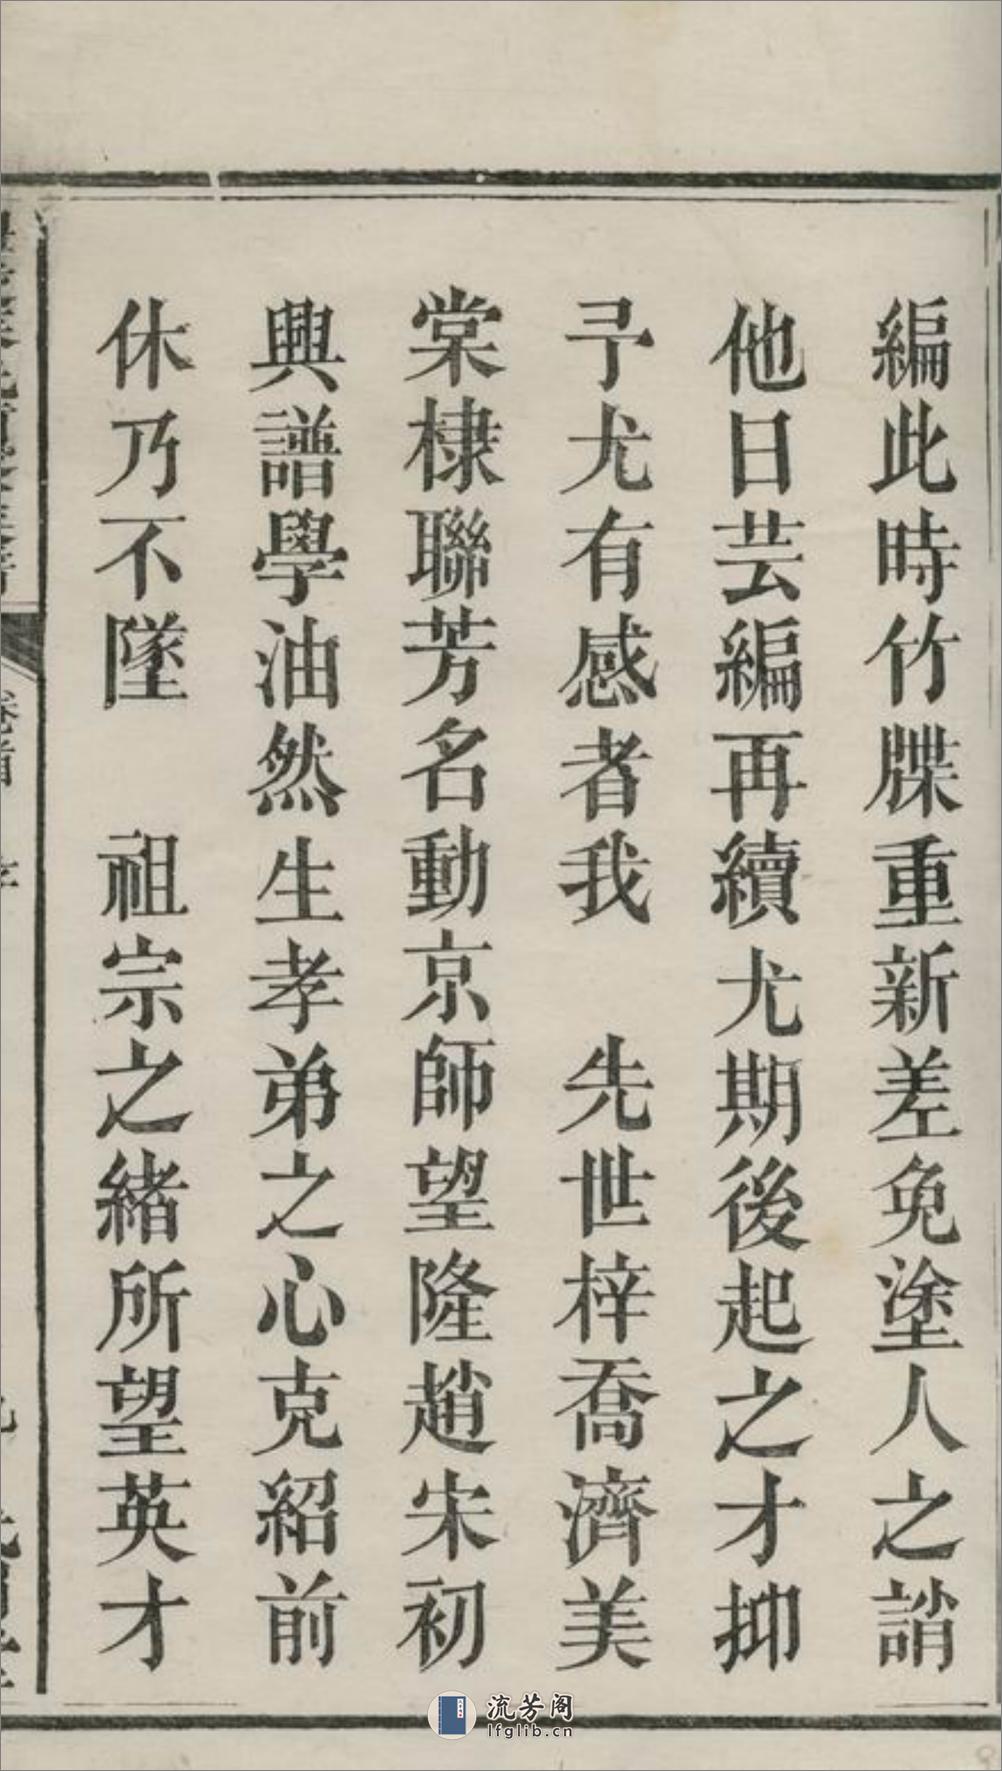 編此時竹牒重新差免塗人之誚
他日芸編再續尤期後起之才抑
予尤有感者我　先世梓喬濟美
棠棣聯芳名動京師望隆趙宋初
興譜學油然生孝弟之心克紹前
休乃不墜　祖宗之緒所望英才
卷首
流芳阁
lfglib.cn